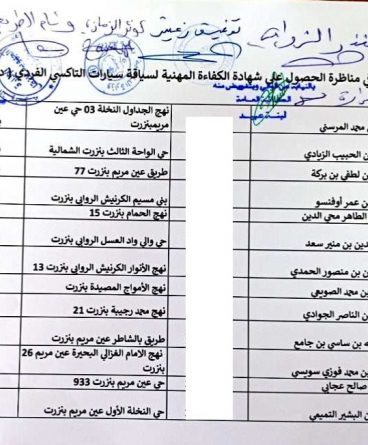 توفيق زغيش
كوثر الزمازي
وسام
ي مناظرة الحصول على شهادة الكفاءة المهنية لسياقة سيارات التاكسي الفردي (
الكاتبة العامة
لبنة عبيد
محمد المرسني نهج الجداول النخلة 03 حي عين مريمبنزرت
ن الحبيب الزيادي حي الواحة الثالث بنزرت الشمالية
ن لطفي بن بركة طريق عين مريم بنزرت 77
ن عمر أوفنسو بني مسيم الكرنيش الروابي بنزرت
الطاهر محي الدين نهج الحمام بنزرت 15
دين بن منير سعد حي والي واد العسل الروابي بنزرت
بن منصور الحمدي نهج الأنوار الكرنيش الروابي بنزرت 13
بن محمد الصويعي نهج الأمواج المصيدة بنزرت
بن الناصر الجوادي نهج محمد رجيبة بنزرت 21
ه بن ساسي بن جامع طريق بالشاطر عين مريم بنزرت
بن محمد فوزي سويسي نهج الامام الغزالي البحيرة عين مريم 26 بنزرت
صالح عجابي حي عين مريم بنزرت 933
ن البشير التميمي حي النخلة الأول عين مريم بنزرت